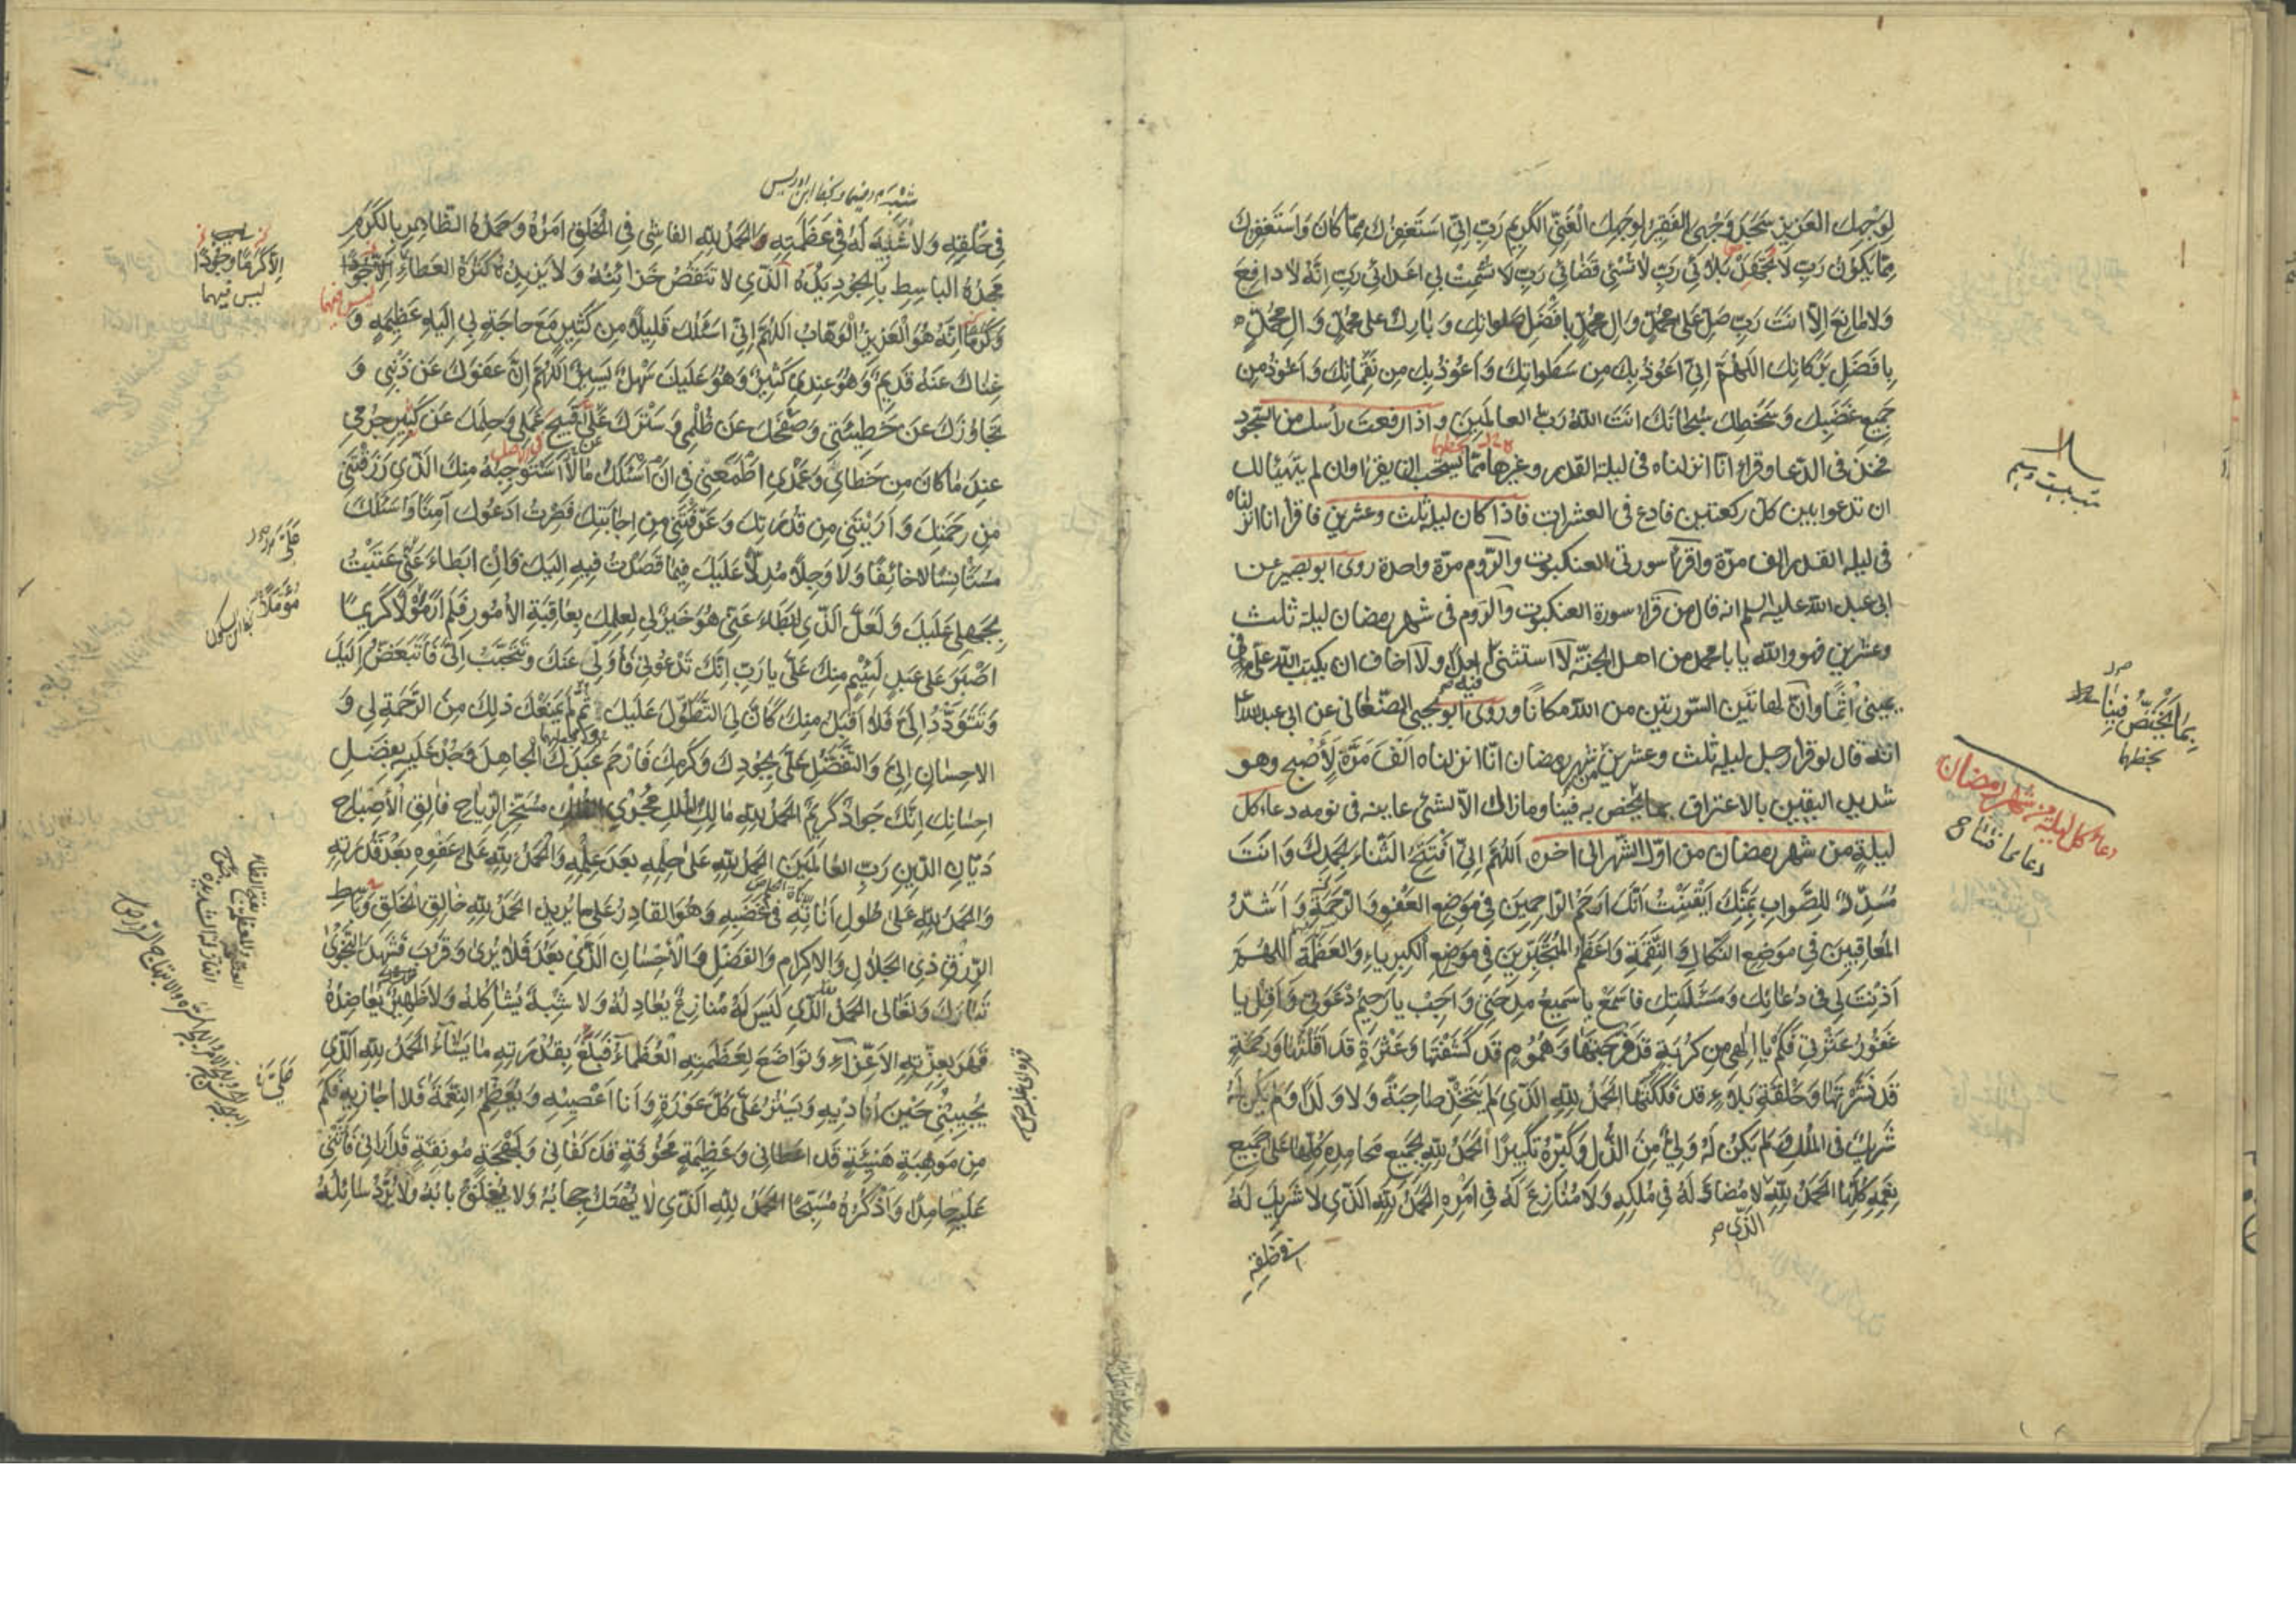 لِوَجْهِكَ العَزيزِ سَجَدَ وَجْهِىَ الفَقيرُ لِوَجْهِكَ الْغَنِىِّ الكَريمِ رَبِّ اِنّى اَسْتَغْفِرُكَ مِمّا كانَ وَاَسْتَغْفِرُكَ
مِمّا يَكوُنُ رَبِّ لا تُجْهِدْ بَلائى رَبِّ لا تُسِئْ قَضائى رَبِّ لا تُشْمِتْ بى اَعْدائى رَبِّ اِنَّهُ لا دافِعَ
وَلا مانِعَ اِلّا اَنْتَ رَبِّ صَلِّ عَلى مُحَمَّدٍ وَالِ مُحَمَّدٍ بِاَفْضَلِ صَلَواتِكَ وَبارِكْ عَلى مُحَمَّدٍ وَالِ مُحَمَّدٍ
بِاَفْضَلِ بَرَكاتِكَ اَللّهُمَّ اِنّى اَعُوْذُ بِكَ مِن سَطَواتِكَ وَاَعُوْذُ بِكَ مِن نَقِماتِكَ وَاَعُوذُ مِن
جَميعِ غَضَبِكَ وَسَخَطِكَ سُبْحانَكَ اَنْتَ اللّهُ رَبُّ العالَمينَ واذا رفعت رأسك من السّجود
فخذ فى الدّعا وقراءة انّا انزلناه فى ليلة القدر وغيرها ممّا يستحبّ ان يقرأ وان لم يتهيّأ لك
ان تدعو بين كلّ ركعتين فادع فى العشرات فاذا كان ليلة ثلث وعشرين فاقرأ انا انزلناه
فى ليلة القدر الف مرّة واقرأ سورتى العنكبوت والرّوم مرّة واحدة روى ابو بصير عن
ابى عبد اللّه عليه السلم انه قال من قرأ سورة العنكبوت والروم فى شهر رمضان ليلة ثلث
وعشرين فهو واللّه يا با محمد من اهل الجنّة لا استثنى فيه ابدًا ولا اخاف ان يكتب اللّه علىّ فى
يمينى اثمًا وانّ لهاتين السّورتين من اللّه مكانًا وروى ابو يحيى الصّنعانى عن ابى عبد اللّه ع
انّه قال لو قرأ رجل ليلة ثلث وعشرين من شهر رمضان انّا انزلناه اَلْفَ مَرَّةٍ لَأَصْبح وهو
شديد اليقين بالاعتراف بما يختص به فينا وما ذاك الّا لشئ عاينه فى نومه دعاء كل
ليلةٍ من شهر رمضان من اوّل الشّهر الى اخره اَللّهُمَّ اِنّى اَفْتَتِحُ الثَّناءَ بِحَمْدِكَ وَاَنْتَ
مُسَدِّدٌ لِلصَّوابِ بِمَنِّكَ اَيْقَنْتُ اَنَّكَ اَرْحَمُ الرّاحِمينَ فى مَوْضِعِ العَفْوِ وَالرَّحْمَةِ وَاَشَدُّ
المُعاقِبينَ فى مَوْضِعِ النَّكالِ وَالنَّقِمَةِ وَاَعْظَمُ المُتَجَبِّرينَ فى مَوْضِعِ الكِبْرِياءِ وَالعَظَمَةِ اَللّهُمَّ
اَذِنْتَ لى فى دُعائِكَ وَمَسْئَلَتِكَ فَاسْمَعْ يا سَميعُ مِدْحَتى وَاَجِبْ يا رَحيمُ دَعْوَتى وَاَقِلْ يا
غَفُورُ عَثْرَتى فَكَمْ يا اِلهى مِن كُرْبَةٍ قَدْ فَرَّجْتَها وَهُمُومٍ قَد كَشَفْتَها وَعَثْرَةٍ قَد اَقَلْتَها وَرَحْمَةٍ
قَد نَشَرْتَها وَحَلْقَةِ بَلاءٍ قَد فَكَكْتَها اَلحَمْدُ لِلّهِ الَّذى لَمْ يَتَّخِذْ صاحِبَةً وَلا وَلَدًا وَلَمْ يَكُنْ لَهُ
شَريكٌ فى المُلْكِ وَلَمْ يَكُنْ لَهُ وَلِىٌّ مِنَ الذُّلِ وَكَبِّرْهُ تَكْبيرًا اَلحَمْدُ لِلّهِ بِجَميعِ مَحامِدِهِ كُلِّها عَلى جَميعِ
نِعَمِهِ كُلِّها اَلحَمْدُ لِلّهِ لا مُضادَّ لَهُ فى مُلْكِهِ وَلا مُنازِعَ لَهُ فى اَمْرِهِ اَلحَمْدُ لِلّهِ الَّذى لا شَريكَ لَهُ
الَّذى
بِما يَخْتَصُّ فينا
بخطهما
دعاء كل ليلة من شهر رمضان
فى خَلْقِهِ وَلا شَبيهَ لَهُ فى عَظَمَتِهِ وَالحَمْدُ لِلّهِ الفاشى فى الْخَلْقِ اَمْرُهُ وَحَمْدُهُ الظّاهِرِ بِالكَرَمِ
مَجْدُهُ الباسِطِ بِالجُودِ يَدَهُ اَلَّذى لا تَنْقُصُ خَزائِنُهُ وَلا يَزيدُهُ كَثْرَةُ العَطاءِ اِلّا جُودًا
وَكَرَمًا اِنَّهُ هُوَ العَزيزُ الْوَهّابُ اَللّهُمَّ اِنّى اَسْئَلُكَ قَليلًا مِن كَثيرٍ مَعَ حاجَةٍ بى اِلَيْهِ عَظيمَةٍ وَ
غِناكَ عَنْهُ قَديمٌ وَهُوَ عِنْدى كَثيرٌ وَهُوَ عَلَيْكَ سَهْلٌ يَسيرٌ اَللّهُمَّ اِنَّ عَفْوَكَ عَنْ ذَنْبى وَ
تَجاوُزَكَ عَنْ خَطيئَتى وَصَفْحَكَ عَن ظُلْمى وَسَتْرَكَ عَلى قَبيحِ عَمَلى وَحِلْمَكَ عَن كَثيرِ جُرْمى
عِنْدَ ما كانَ مِن خَطائى وَعَمْدى اَطْمَعَنى فى اَنْ اَسْئَلَكَ ما لا اَسْتَوْجِبُهُ مِنْكَ الَّذى رَزَقْتَنى
مِن رَحْمَتِكَ وَاَرَيْتَنى مِن قُدْرَتِكَ وَعَرَّفْتَنى مِن اِجابَتِكَ فَصِرْتُ اَدْعُوكَ آمِنًا وَاَسْئَلُكَ
مُسْتَأنِسًا لا خائِفًا وَلا وَجِلًا مُدِلًّا عَلَيْكَ فيما قَصَدْتُ فيهِ اِلَيْكَ فَاِنْ اَبْطاءَ عَنّى عَتَبْتُ
بِجَهْلى عَلَيْكَ وَلَعَلَّ الَّذى اَبْطَاءَ عَنّى هُوَ خَيْرٌ لى لِعِلْمِكَ بِعاقِبَةِ الأُمُورِ فَلَمْ اَرَ مَوْلًا كَريمًا
اَصْبَرَ عَلى عَبْدٍ لَئيمٍ مِنْكَ عَلَىَّ يا رَبِّ اِنَّكَ تَدْعُونى فَاُوَلّى عَنْكَ وَتَتَحَبَّبُ اِلَىَّ فَاَتَبَغَّضُ اِلَيْكَ
وَتَتَوَدَّدُ اِلَىَّ فَلا اَقْبَلُ مِنْكَ كَاَنَّ لِىَ التَّطَوُّلَ عَلَيْكَ ثُمَّ لَمْ يَمْنَعْكَ ذلِكَ مِنَ الرَّحْمَةِ لى وَ
الاحْسانِ اِلَىَّ وَالتَّفَضُّلِ عَلَىَّ بِجُودِكَ وَكَرَمِكَ فَارْحَمْ عَبْدَكَ الجاهِلَ وَجُدْ عَلَيْهِ بِفَضْلِ
اِحْسانِكَ اِنَّكَ جَوادٌ كَريمٌ اَلحَمْدُ لِلّهِ مالِكِ المُلْكِ مُجْرِى الفُلْكِ مُسَخِّرِ الرِّياحِ فالِقِ الأَصْباحِ
دَيّانِ الدّينِ رَبِّ العالَمينَ اَلحَمْدُ لِلّهِ عَلى حِلْمِهِ بَعْدَ عِلْمِهِ وَالحَمْدُ لِلّهِ عَلى عَفْوِهِ بَعْدَ قُدْرَتِهِ
وَالحَمْدُ لِلّهِ عَلى طُولِ اَناتِهِ فى غَضَبِهِ وَهُوَ القادِرُ عَلى ما يُريدُ اَلحَمْدُ لِلّهِ خالِقِ الخَلْقِ وَباسِطِ
الرِّزْقِ ذِى الجَلالِ وَالاِكْرامِ وَالفَضْلِ وَالأِحْسانِ الَّذى بَعُدَ فَلا يُرى وَقَرُبَ فَشَهِدَ النَّجْوى
تَبارَكَ وَتَعالى اَلحَمْدُ لِلّهِ الَّذى لَيْسَ لَهُ مُنازِعٌ يُعادِلُهُ وَلا شِبْهٌ يُشاكِلُهُ وَلا ظَهيرٌ يُعاضِدُهُ
قَهَرَ بِعِزَّتِهِ الاَعِزّاءَ وَتَواضَعَ لِعَظَمَتِهِ العُظَماءُ فَبَلَغَ بِقُدْرَتِهِ ما يَشاءُ اَلحَمْدُ لِلّهِ الَّذى
يُجيبُنى حينَ اُناديهِ وَيَسْتُرُ عَلَىَّ كُلَّ عَوْرَةٍ وَاَنا اَعْصيهِ وَيُعَظِّمُ النِّعْمَةَ فَلا اُجازيهِ فَكَمْ
مِن مَوْهِبَةٍ هَنيئَةٍ قَد اَعْطانى وَعَظيمَةٍ مَخُوفَةٍ قَد كَفانى وَبَهْجَةٍ مُونِقَةٍ قَد اَرانى فَاُثْنى
عَلَيْهِ حامِدًا وَاَذْكُرُهُ مُسَبِّحًا اَلحَمْدُ لِلّهِ الَّذى لا يُهْتَكُ حِجابُهُ وَلا يُغْلَقُ بابُهُ وَلا يُرَدُّ سائِلُهُ
اِلّا كَرَمًا وَجُودًا
ليس فيهما